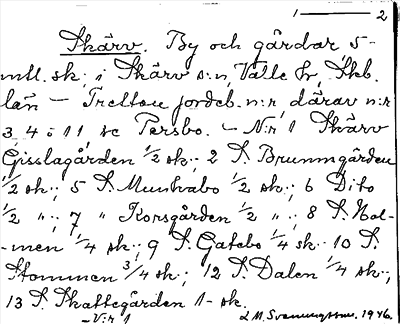 1 — 2
Skärv. By och gårdar 5-
mtl. sk. i Skärv s:n, Valle hr, Skb.
län — Tretton jordeb. n:r, därav n:r
3, 4 o 11 se Persbo. — N:r 1 Skärv
Gisslagården 1/2 sk.; 2 S. Brunnmgården
1/2 sk.; 5 S. Munkabo 1/2 sk.; 6 Dito
1/2 " ; 7 " Korsgården 1/2 " ; 8 S. Hol-
-men 1/4 sk.; 9 S. Gatebo 1/4 sk. 10 S.
Stommen 3/4 sk.; 12 S. Dalen 1/4 sk.;
13 S. Skattegården 1- sk.
— N:r 1
1946.